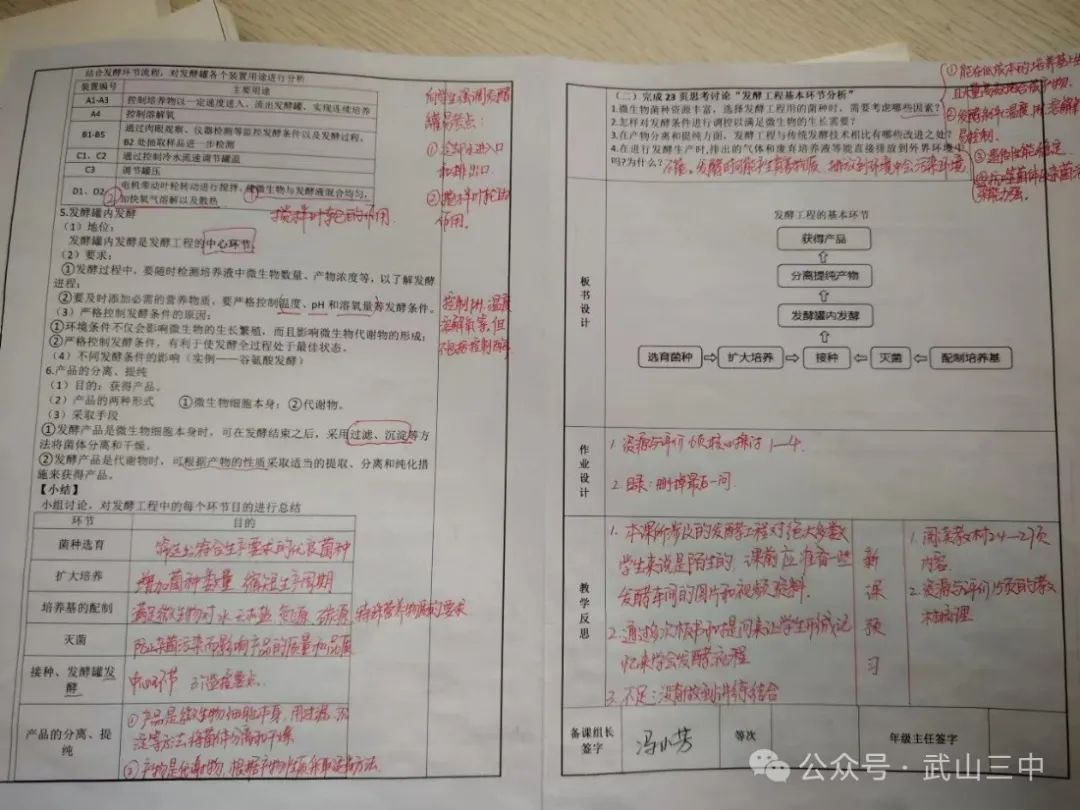 结合发酵环节流程，对发酵罐各个装置用途进行分析
装置编号 主要用途
A1-A3 控制培养物以一定速度进入、流出发酵罐，实现连续培养
A4 控制溶解氧
B1-B5 通过肉眼观察、仪器检测等监控发酵条件以及发酵过程，
B2 处抽取样品进一步检测
C1、C2 通过控制冷水流速调节罐温
C3 调节罐压
D1、D2 电机带动叶轮转动进行搅拌，①使微生物与发酵液混合均匀，
②加快氧气溶解以及散热
搅拌叶轮的作用
向学生强调易错
易考点：
①冷却水进口
和排出口
②搅拌叶轮的
作用。
5.发酵罐内发酵
（1）地位：
发酵罐内发酵是发酵工程的中心环节。
（2）要求：
①发酵过程中，要随时检测培养液中微生物数量、产物浓度等，以了解发酵
进程；
②要及时添加必需的营养物质，要严格控制温度、pH 和溶氧量等发酵条件。
（3）严格控制发酵条件的原因：
①环境条件不仅会影响微生物的生长繁殖，而且影响微生物代谢物的形成；
②严格控制发酵条件，有利于使发酵全过程处于最佳状态。
（4）不同发酵条件的影响（实例——谷氨酸发酵）
控制pH、温度
溶解氧等，但
不包括控制
6.产品的分离、提纯
（1）目的：获得产品。
（2）产品的两种形式 ①微生物细胞本身；②代谢物。
（3）采取手段
①发酵产品是微生物细胞本身时，可在发酵结束之后，采用过滤、沉淀等方
法将菌体分离和干燥。
②发酵产品是代谢物时，可根据产物的性质采取适当的提取、分离和纯化措
施来获得产品。
【小结】
小组讨论，对发酵工程中的每个环节目的进行总结
环节 目的
菌种选育 筛选出符合生产要求的优良菌种
扩大培养 增加菌种数量 缩短生产周期
培养基的配制 满足微生物对水 无机盐 氮源 碳源 特殊营养物质的要求
灭菌 防止杂菌污染而影响产品的质量和品质
接种、发酵罐发
酵
中心环节
产品的分离、提
纯
①产品是微生物细胞本身，用过滤、沉
淀等方法将菌体分离和干燥
②产物是代谢物，根据产物性质采取适当方法.
（二）完成 23 页思考讨论“发酵工程基本环节分析”
1.微生物菌种资源丰富，选择发酵工程用的菌种时，需要考虑哪些因素？
2.怎样对发酵条件进行调控以满足微生物的生长需要？
3.在产物分离和提纯方面，发酵工程与传统发酵技术相比有哪些改进之处？
4.在进行发酵生产时,排出的气体和废弃培养液等能直接排放到外界环境中
吗?为什么？不能。发酵时可能产生有毒物质，排放到环境中会污染环境
①能在低成本的培养基上
易控制.
板书设计
发酵工程的基本环节
获得产品
分离提纯产物
发酵罐内发酵
选育菌种 扩大培养 接种 灭菌 配制培养基
作业设计
1.资源与评价 核心探讨 1—4.
2. 目录：删掉最后一问.
教学反思
1. 本课所涉及的发酵工程对绝大多数
学生来说是陌生的，课前应准备一些
发酵车间的图片和视频资料.
2. 通过多次板书和提问来让学生形成记
忆来学会发酵流程
3. 不足：没有做到讲练结合
新课预习
1. 阅读教材24—27页
内容.
2. 资源与评价15页的教
材梳理
备课组长
签字 冯小芳 等次 年级主任签字
公众号·武山三中